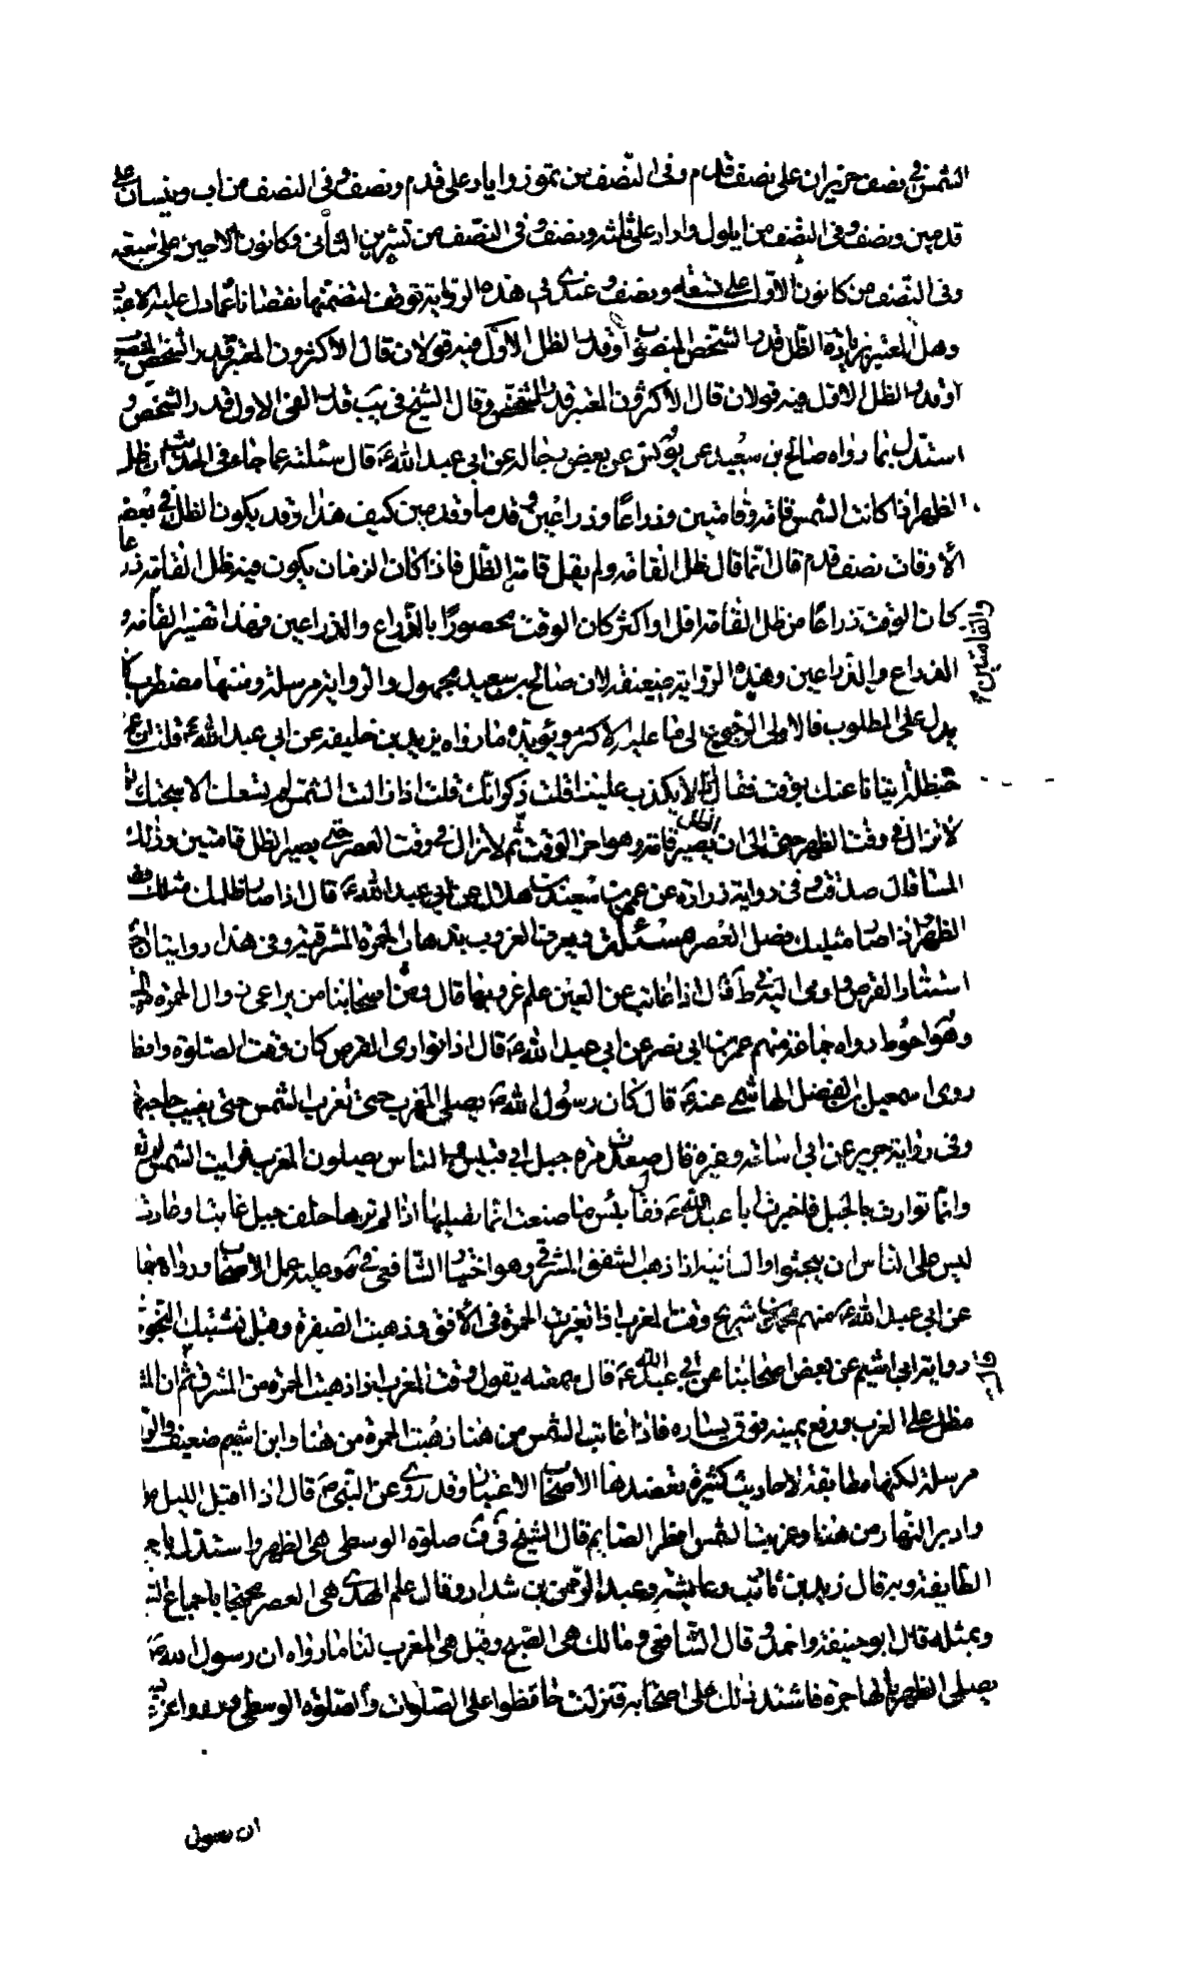 الشمس في نصف حزيران على نصف قدم وفى النصف من تموز واياد على قدم ونصف وفى النصف من اب ونيسان على
قدمين ونصف وفى النصف من ايلول واداد على ثلثه ونصف وفى النصف من تشرين الثانى وكانون الاخير على سبعه
وفى النصف من كانون الاول على تسعه ونصف وعندى فى هذه الرواية توقف لتضمنها نقصانا عما دل عليه الاعتبار
وهل المعتبر بزيادة الظل قدر الشخص المنصوب او قدر الظل الاول فيه قولان قال الاكثرون المعتبر قدر الشخص
او قدر الظل الاول فيه قولان قال الاكثرون المعتبر قدر الشخص وقال الشيخ فى يب قدر الفئ الاول قدر الشخص و
استدل بما رواه صالح بن سعيد عن يونس عن بعض رجاله عن ابى عبد الله ع قال سئلته عما جاء فى الحديث ان ظل
الظهر اذا كانت الشمس قامة وقامتين وذراعا وذراعين وقدما وقدمين كيف هذا وقد يكون الظل فى بعض
الاوقات نصف قدم قال انما قال ظل القامة ولم يقل قامة الظل فاذا كان الزمان يكون فيه ظل القامة ذراعا
كان الوقت ذراعا من ظل القامة اقل او اكثر كان الوقت محصورا بالذراع والذراعين فهذا تفسير القامة و
والقامتين
الذراع والذراعين وهذه الرواية ضعيفة لان صالح بن سعيد مجهول والرواية مرسلة ومتنها مضطرب لا
يدل على المطلوب فالاولى الرجوع الى ما عليه الاكثر ويؤيده ما رواه يزيد بن خليفه عن ابى عبد الله ع قلت ان عمر
حنظلة اتيانا عنك بوقت فقال اذا لا يكذب علينا قلت ذكر انك قلت اذا زالت الشمس لم يمنعك الا سبحتك ثم
لا تزال فى وقت الظهر حتى الى ان يصير الظل قامة وهو اخر الوقت ثم لا تزال فى وقت العصر حتى يصير الظل قامتين وذلك
المسا قال صدق وفى رواية زرارة عن عمر بن سعيد بن هلال عن ابى عبد الله ع قال اذا صار ظلك مثلك فصل
الظهر واذا صار مثليك فصل العصر مسئلة ويعرف الغروب بذهاب الحمرة المشرقية وفى هذا روايتان
استتار القرص واومى اليه فى ط قال اذا غابت عن العين علم غروبها قال ومن اصحابنا من يراعى زوال الحمرة
وهو احوط رواه جماعة منهم عمر بن ابى نصر عن ابى عبد الله ع قال اذا توارى القرص كان وقت الصلوة وافطر
روى اسمعيل بن الفضل الهاشمى عنه ع قال كان رسول الله ص يصلى المغرب حتى تغرب الشمس حتى يغيب حاجبها
وفى رواية حريز عن ابى اسامة وغيره قال صعدت مرة جبل ابى قبيس والناس يصلون المغرب فرايت الشمس لم تغب
وانما توارت بالجبل فاخبرت ابا عبد الله ع فقال بئس ما صنعت انما نصليها اذا لم ترها خلف جبل غابت او غارت
ليس على الناس ان يبحثوا والثانية اذا ذهب الشفق المشرقى وهو اختيار الشافعى وعليه عمل الاصحاب ورواه جماعة
عن ابى عبد الله ع منهم محمد بن شريح وقت المغرب اذا تغيرت الحمرة فى الافق وذهبت الصفرة وقبل تشتبك النجوم
رواية ابن اشيم عن بعض اصحابنا عن ابى عبد الله ع قال سمعته يقول وقت المغرب اذا ذهبت الحمرة من المشرق ثم ان المشرق
مطل على المغرب ورفع يمينه فوق يساره فاذا غابت الشمس من هنا ذهبت الحمرة من هنا وابن اشيم ضعيف والرواية
مرسلة لكنها مطابقة لاحاديث كثيرة تعضدها الاصحاب الاعتبار وقد روى عن النبى ص قال اذا اقبل الليل من هنا
وادبر النهار من هنا وغربت الشمس افطر الصايم قال الشيخ فى ف صلوة الوسطى هى الظهر واستدل باجماع
الطايفة وبه قال زيد بن ثابت وعايشه وعبد الرحمن بن شداد وقال علم الهدى هى العصر محتجا باجماع
وبمثله قال ابو حنيفه واحمد وقال الشافعى ومالك هى الصبح وقيل هى المغرب لنا ما رواه ان رسول الله ص
يصلى الظهر بالهاجرة فاشتد ذلك على اصحابه فنزلت حافظوا على الصلوات والصلوة الوسطى ورووا عن
ان رسول